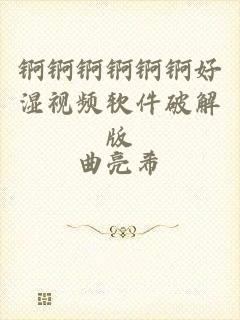 锕锕锕锕锕锕好
湿视频软件破解
版
曲亮希